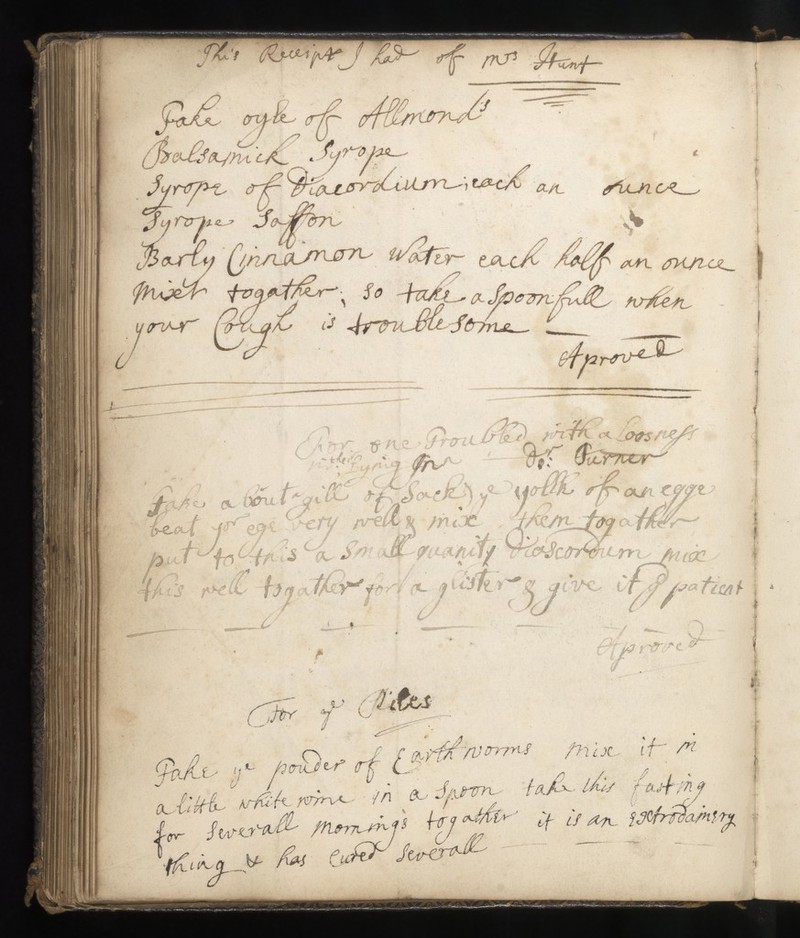 This Receipt I had of Mrs Hunt
Take oyle of Allmond's
Balsamick Syrope
Syrope of Diacordium, each an ounce
Syrope Saffon
Barly Cinnamon water each half an ounce
Mixt togather; so take a Spoonfull when
your Cough is troublesome
Aproved
For one Troubled with a loosness
Lying In Dr: Turner
Take a bout a gill of Sack & ye yollk of an egge
beat yor ege very well & mix them togather
put to this a Small quanity Diascordum mix
this well togather for a glister & give it ye patient
Aproved
For ye Piles
Take ye pouder of Earthworms mix it in
a little white wine in a Spoon take this fasting
for Severall Mornings togather it is an Extrodainery
thing & has Cured Severall